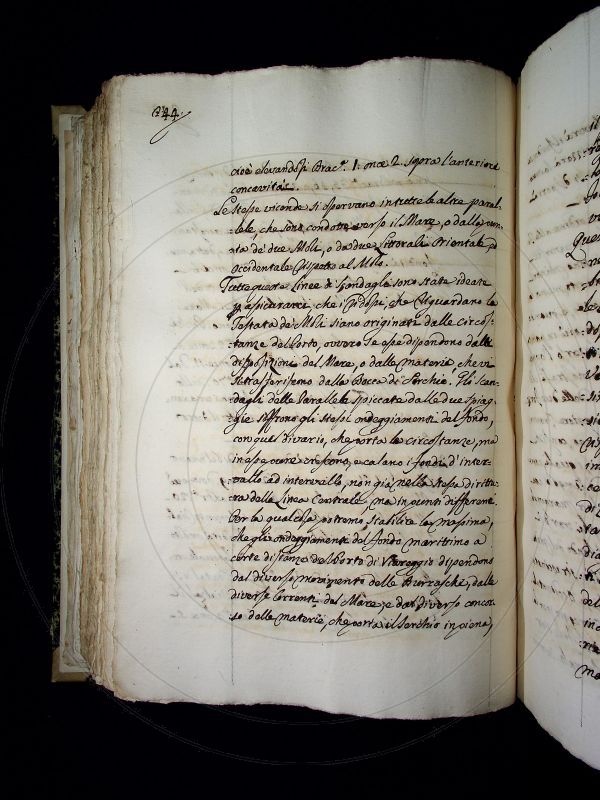 244.
cioè elevandosi Brac.ª 1. once 2. sopra l'anteriore
concavità.
Le stesse vicende si osservano in tutte le altre paral=
lele, che sono condotte verso il Mare, o dalla
ta de' due Moli, o da due Littorali Orientale, ed
Occidentale rispetto al Molo.
Tutte queste Linee di Scandagli sono state ideate
p assicurarci, che i Ridossi, che riguardano la
Tastata de' Moli siano originati dalle circos=
tanze del Porto, ovvero se essi dipendono dalla
disposizione del Mare, o dalle materie, che vi
si trasferissero dalla Bocca di Serchio. Gli Scan=
dagli delle Parallele spiccate dalle due Spiag=
gie soffrono gli stessi ondeggiamenti del fondo,
con quel divario, che porta le circostanze, ma
in esse ove crescono, e calano i fondi d'inter=
vallo ad intervallo, non già nella stessa dirittu=
ra della Linea Centrale, ma in punti differenti.
Per la qual cosa potremo stabilire la massima,
che gli ondeggiamenti del fondo marittimo a
certe distanze del Porto di Viareggio dipendono
dal diverso movimento delle Burrasche, dalle
diverse Correnti del Mare, e dal diverso concor=
so delle materie, che porta il Serchio in piena,